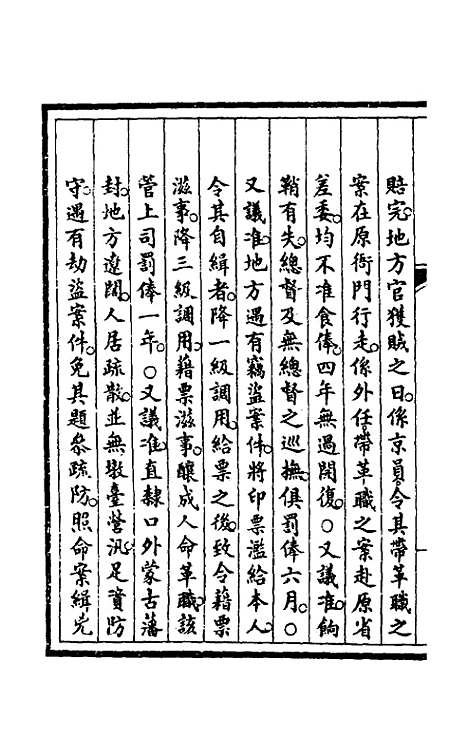 賠完。地方官獲賊之日。係京員。令其帶革職之
案在原衙門行走。係外任。帶革職之案赴原省
差委。均不准食俸。四年無過開復。○又議准。餉
鞘有失。總督及無總督之巡撫。俱罰俸六月。○
又議准。地方遇有竊盜案件。將印票濫給本人。
令其自緝者。降一級調用。給票之後。致令藉票
滋事。降三級調用。藉票滋事。釀成人命革職。該
管上司罰俸一年。○又議准。直隸口外蒙古藩
封。地方遼闊。人居疏散。並無墩臺營汛。足資防
守。遇有劫盜案件。免其題參疏防。照命案緝兇